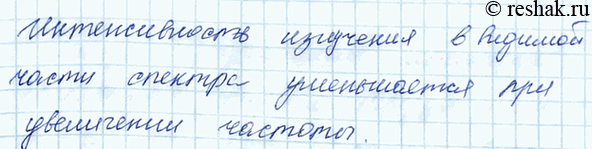 © reshak.ru
Интенсивность излучения в видимой
части спектра уменьшается при
увеличении частоты.